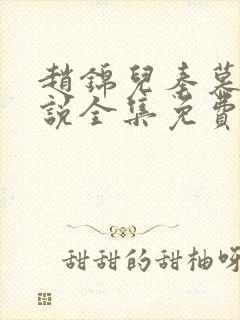 趙錦兒秦慕
說全集免費
甜甜的甜柚呀